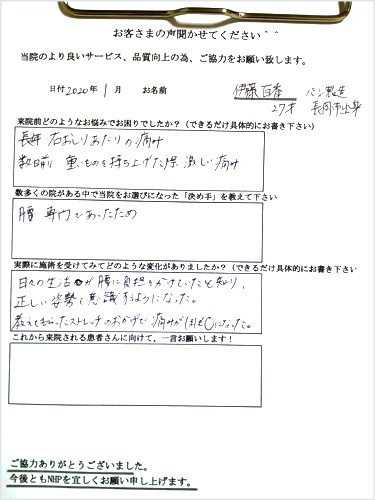 お客さまの声聞かせてください＾＾
当院のより良いサービス、品質向上の為、ご協力をお願い致します。
日付 2020年 1月 お名前 伊藤 百香 パン製造
27才 長岡市出身
来院前どのようなお悩みでお困りでしたか？（できるだけ具体的にお書き下さい）
長年 右おしりあたりの痛み
数日前 重いものを持ち上げた際 激しい痛み
数多くの院がある中で当院をお選びになった「決め手」を教えて下さい
腰 専門であったため
実際に施術を受けてみてどのような変化がありましたか？（できるだけ具体的にお書き下さい
日々の生活が腰に負担をかけていたと知り、
正しい姿勢を意識するようになった。
教えてもらったストレッチのおかげで 痛みがほぼ0になった。
これから来院される患者さんに向けて、一言お願いします！
ご協力ありがとうございました。
今後ともNHPを宜しくお願い申し上げます。